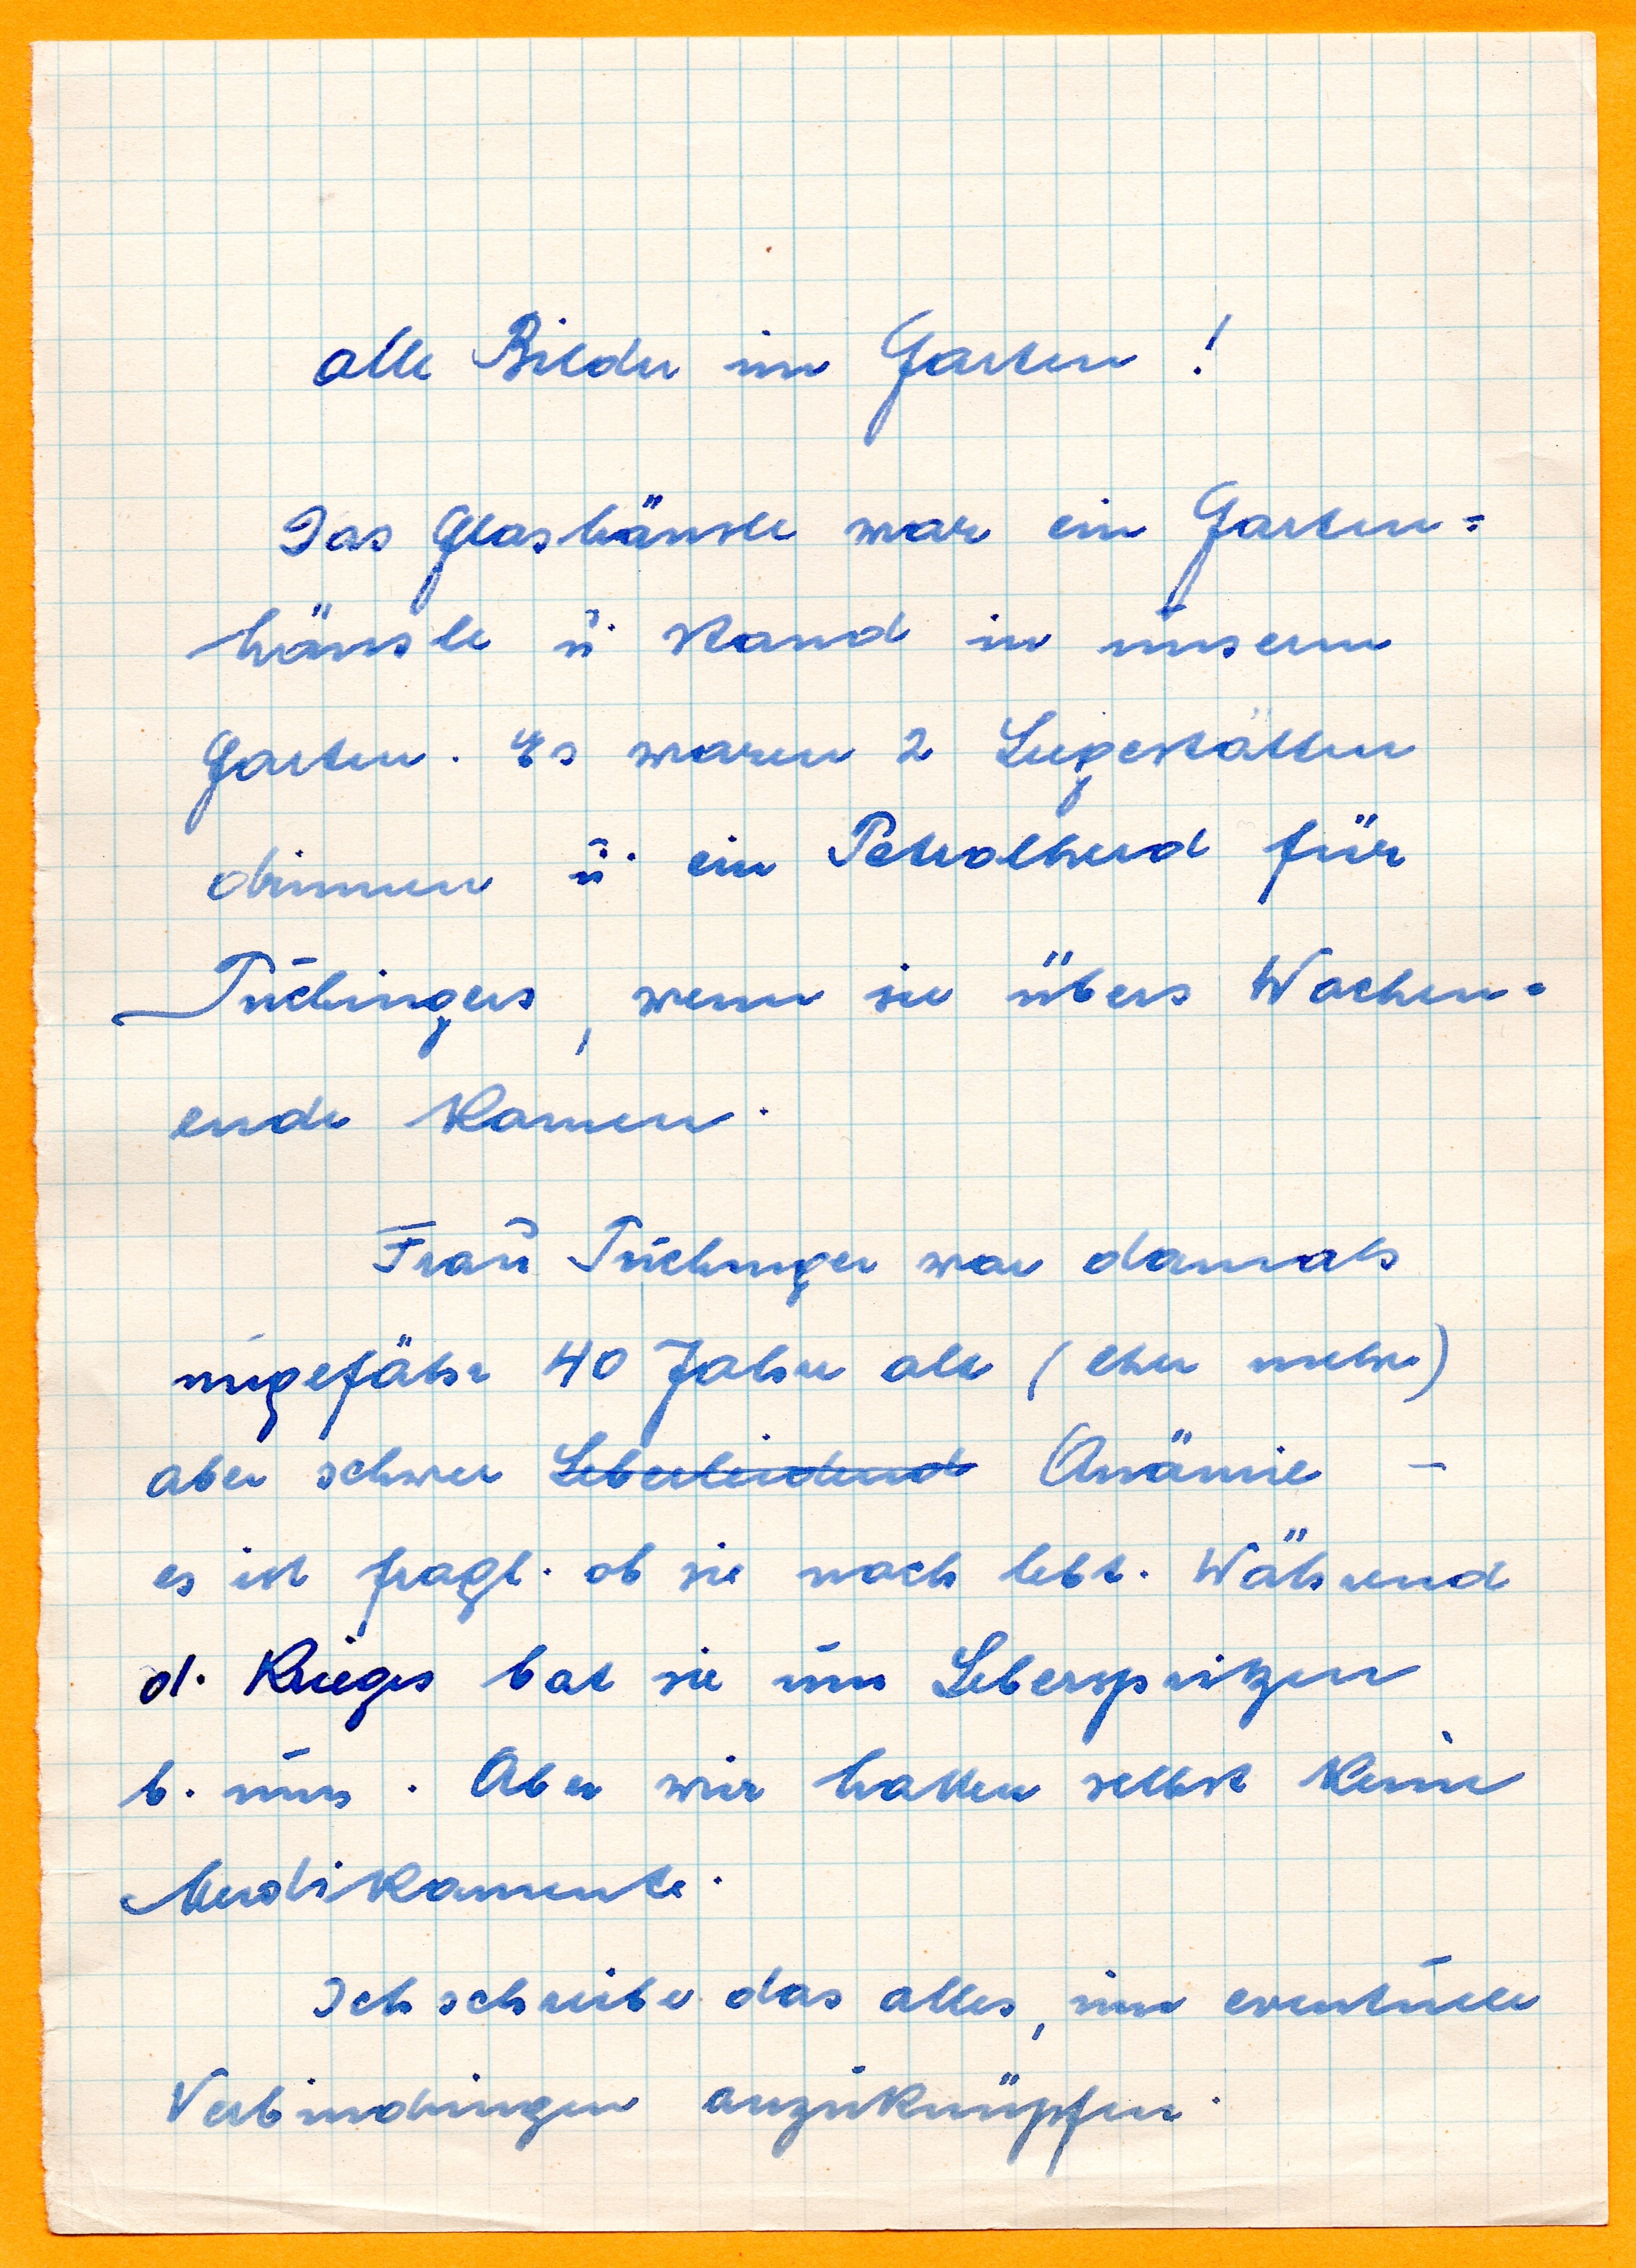 alle Bilder im Garten !
Das Glashäusle war ein Garten=
häusle u. stand in unserm
Garten. Es waren 2 Liegestätten
drinnen u. ein Petrolherd für
Tuchingers, wenn sie übers Wochen=
ende kamen.
Frau Tuchinger war damals
ungefähr 40 Jahre alt (eher mehr)
aber schwer Leberleidend Anämie –
es ist fragl. ob sie noch lebt. Während
d. Krieges bat sie um Leberspritzen
b. uns. Aber wir hatten selbst keine
Medikamente.
Ich schreibe das alles, um eventuelle
Verbindungen anzuknüpfen.